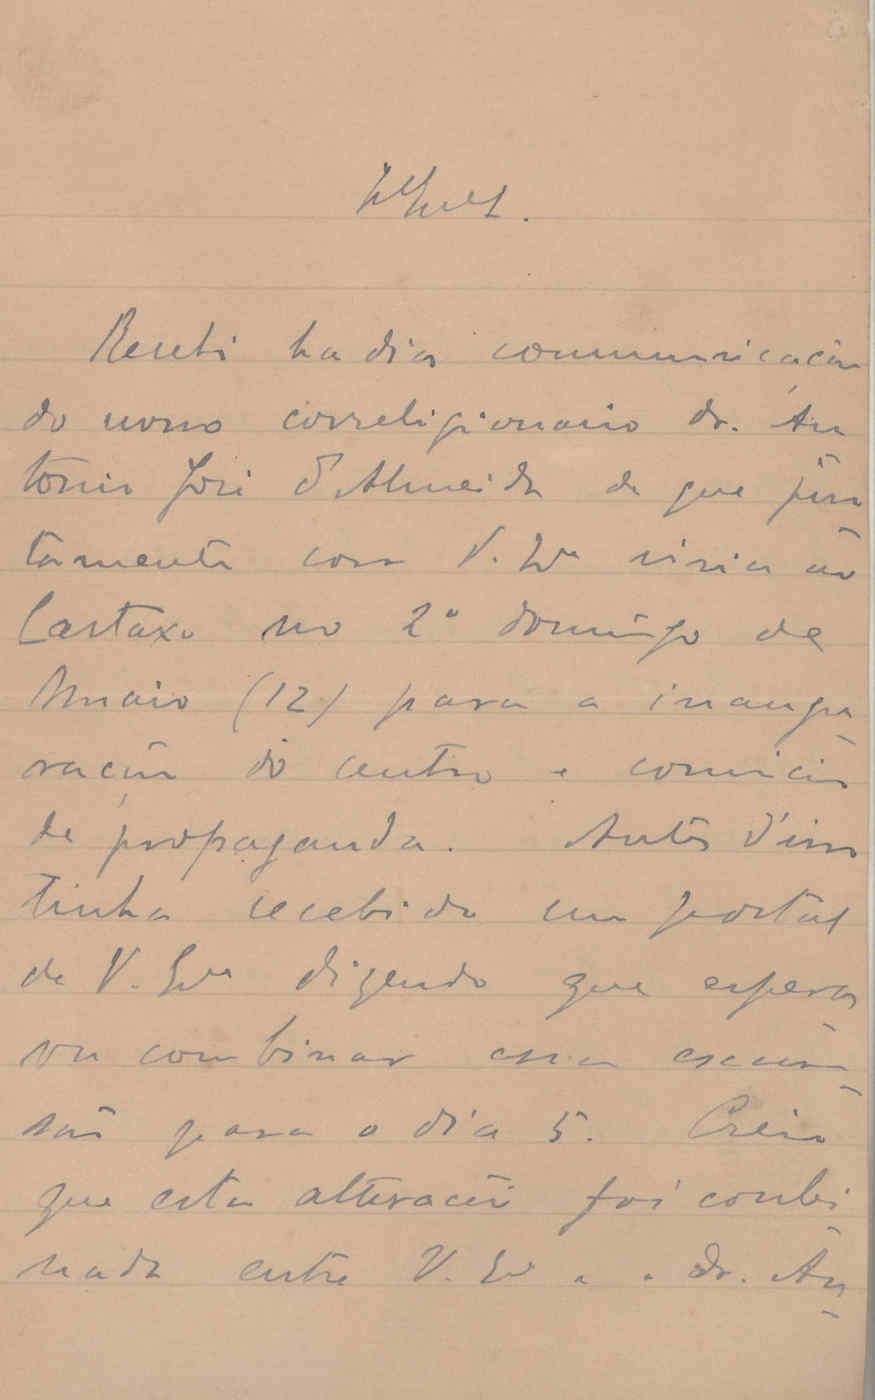 Recebi ha dias communicação
do nosso correligionario dr. An
tonio José d'Almeida de que jun
tamente com V. Exª viria ao
Cartaxo no 2º domingo de
Maio (12) para a inaugu
ração do centro e comicio
de propaganda. Antes d'isso
tinha recebido um postal
de V. Exª dizendo que espera
va combinar essa excur
são para o dia 5. Creio
que esta alteração foi combi
nada entre V. Exª e o dr. An